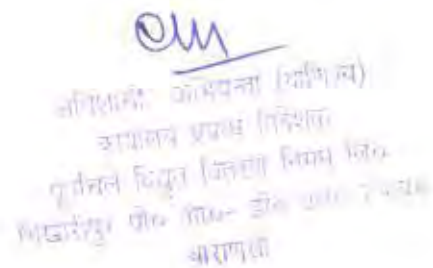 अधिशासी अभियन्ता (वाणिज्य)
कार्यालय प्रबन्ध निदेशक
पूर्वांचल विद्युत वितरण निगम लि०
भिखारीपुर पो०
वाराणसी